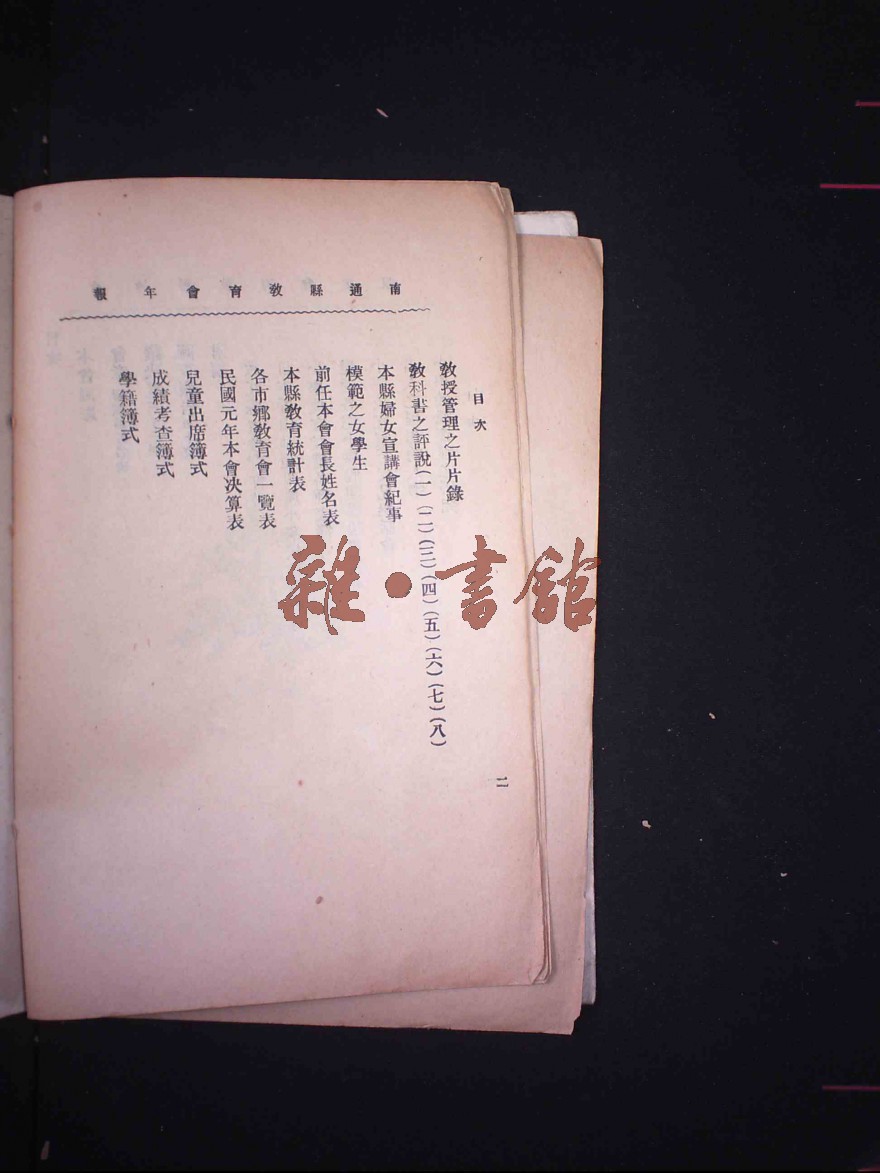 南通縣教育會年報
目次
教授管理之片片錄
教科書之評說(一)(二)(三)(四)(五)(六)(七)(八)
本縣婦女宣講會紀事
模範之女學生
前任本會會長姓名表
本縣教育統計表
各市鄉教育會一覽表
民國元年本會决算表
兒童出席簿式
成績考查簿式
學籍簿式
二
雜·書館